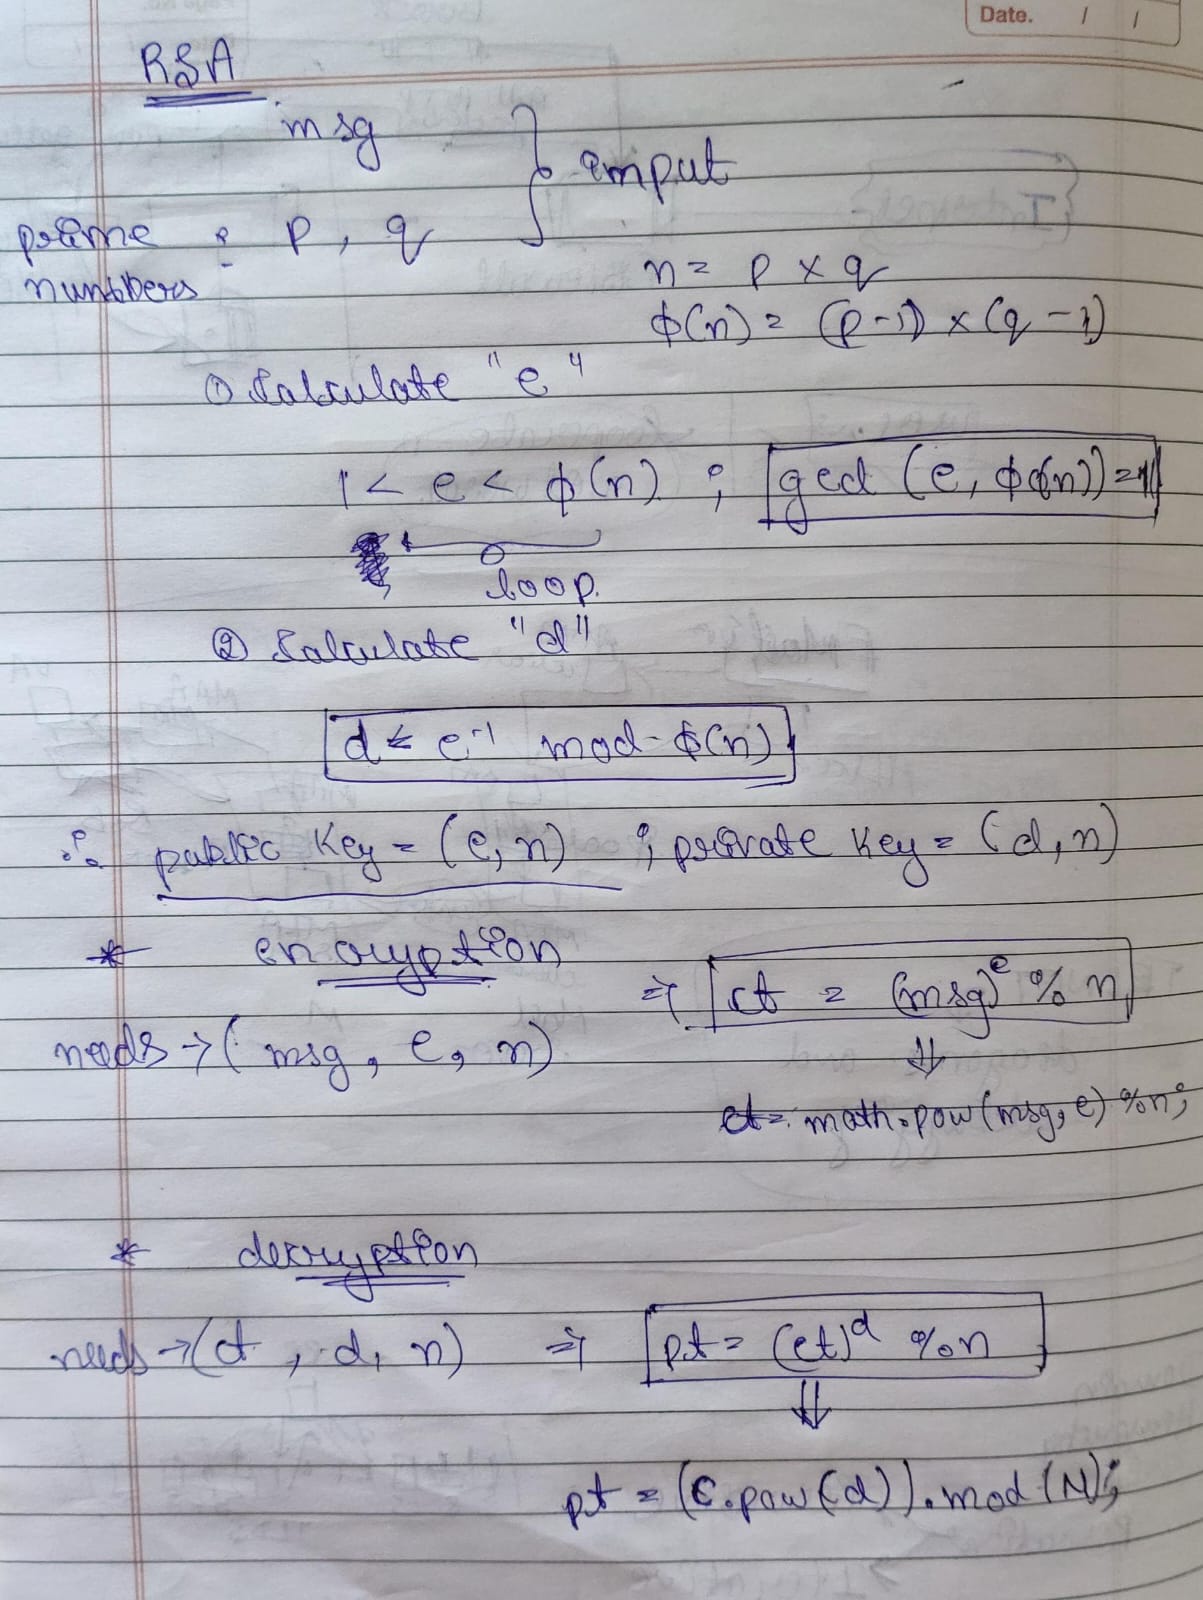 Date. / /
RSA
msg
input
prime : p, q
numbers
n = p × q
ϕ(n) = (p-1) × (q-1)
① Calculate "e"
1 < e < ϕ(n) ; gcd (e, ϕ(n)) = 1
loop.
② Calculate "d"
d = e⁻¹ mod ϕ(n)
∴ public key = (e, n) ; private key = (d, n)
* encryption
⇒ ct = (msg)^e % n
needs → (msg, e, n)
⇓
ct = math.pow(msg, e) % n;
* decryption
needs → (ct, d, n) ⇒ pt = (ct)^d % n
⇓
pt = (c.pow(d)).mod(N);